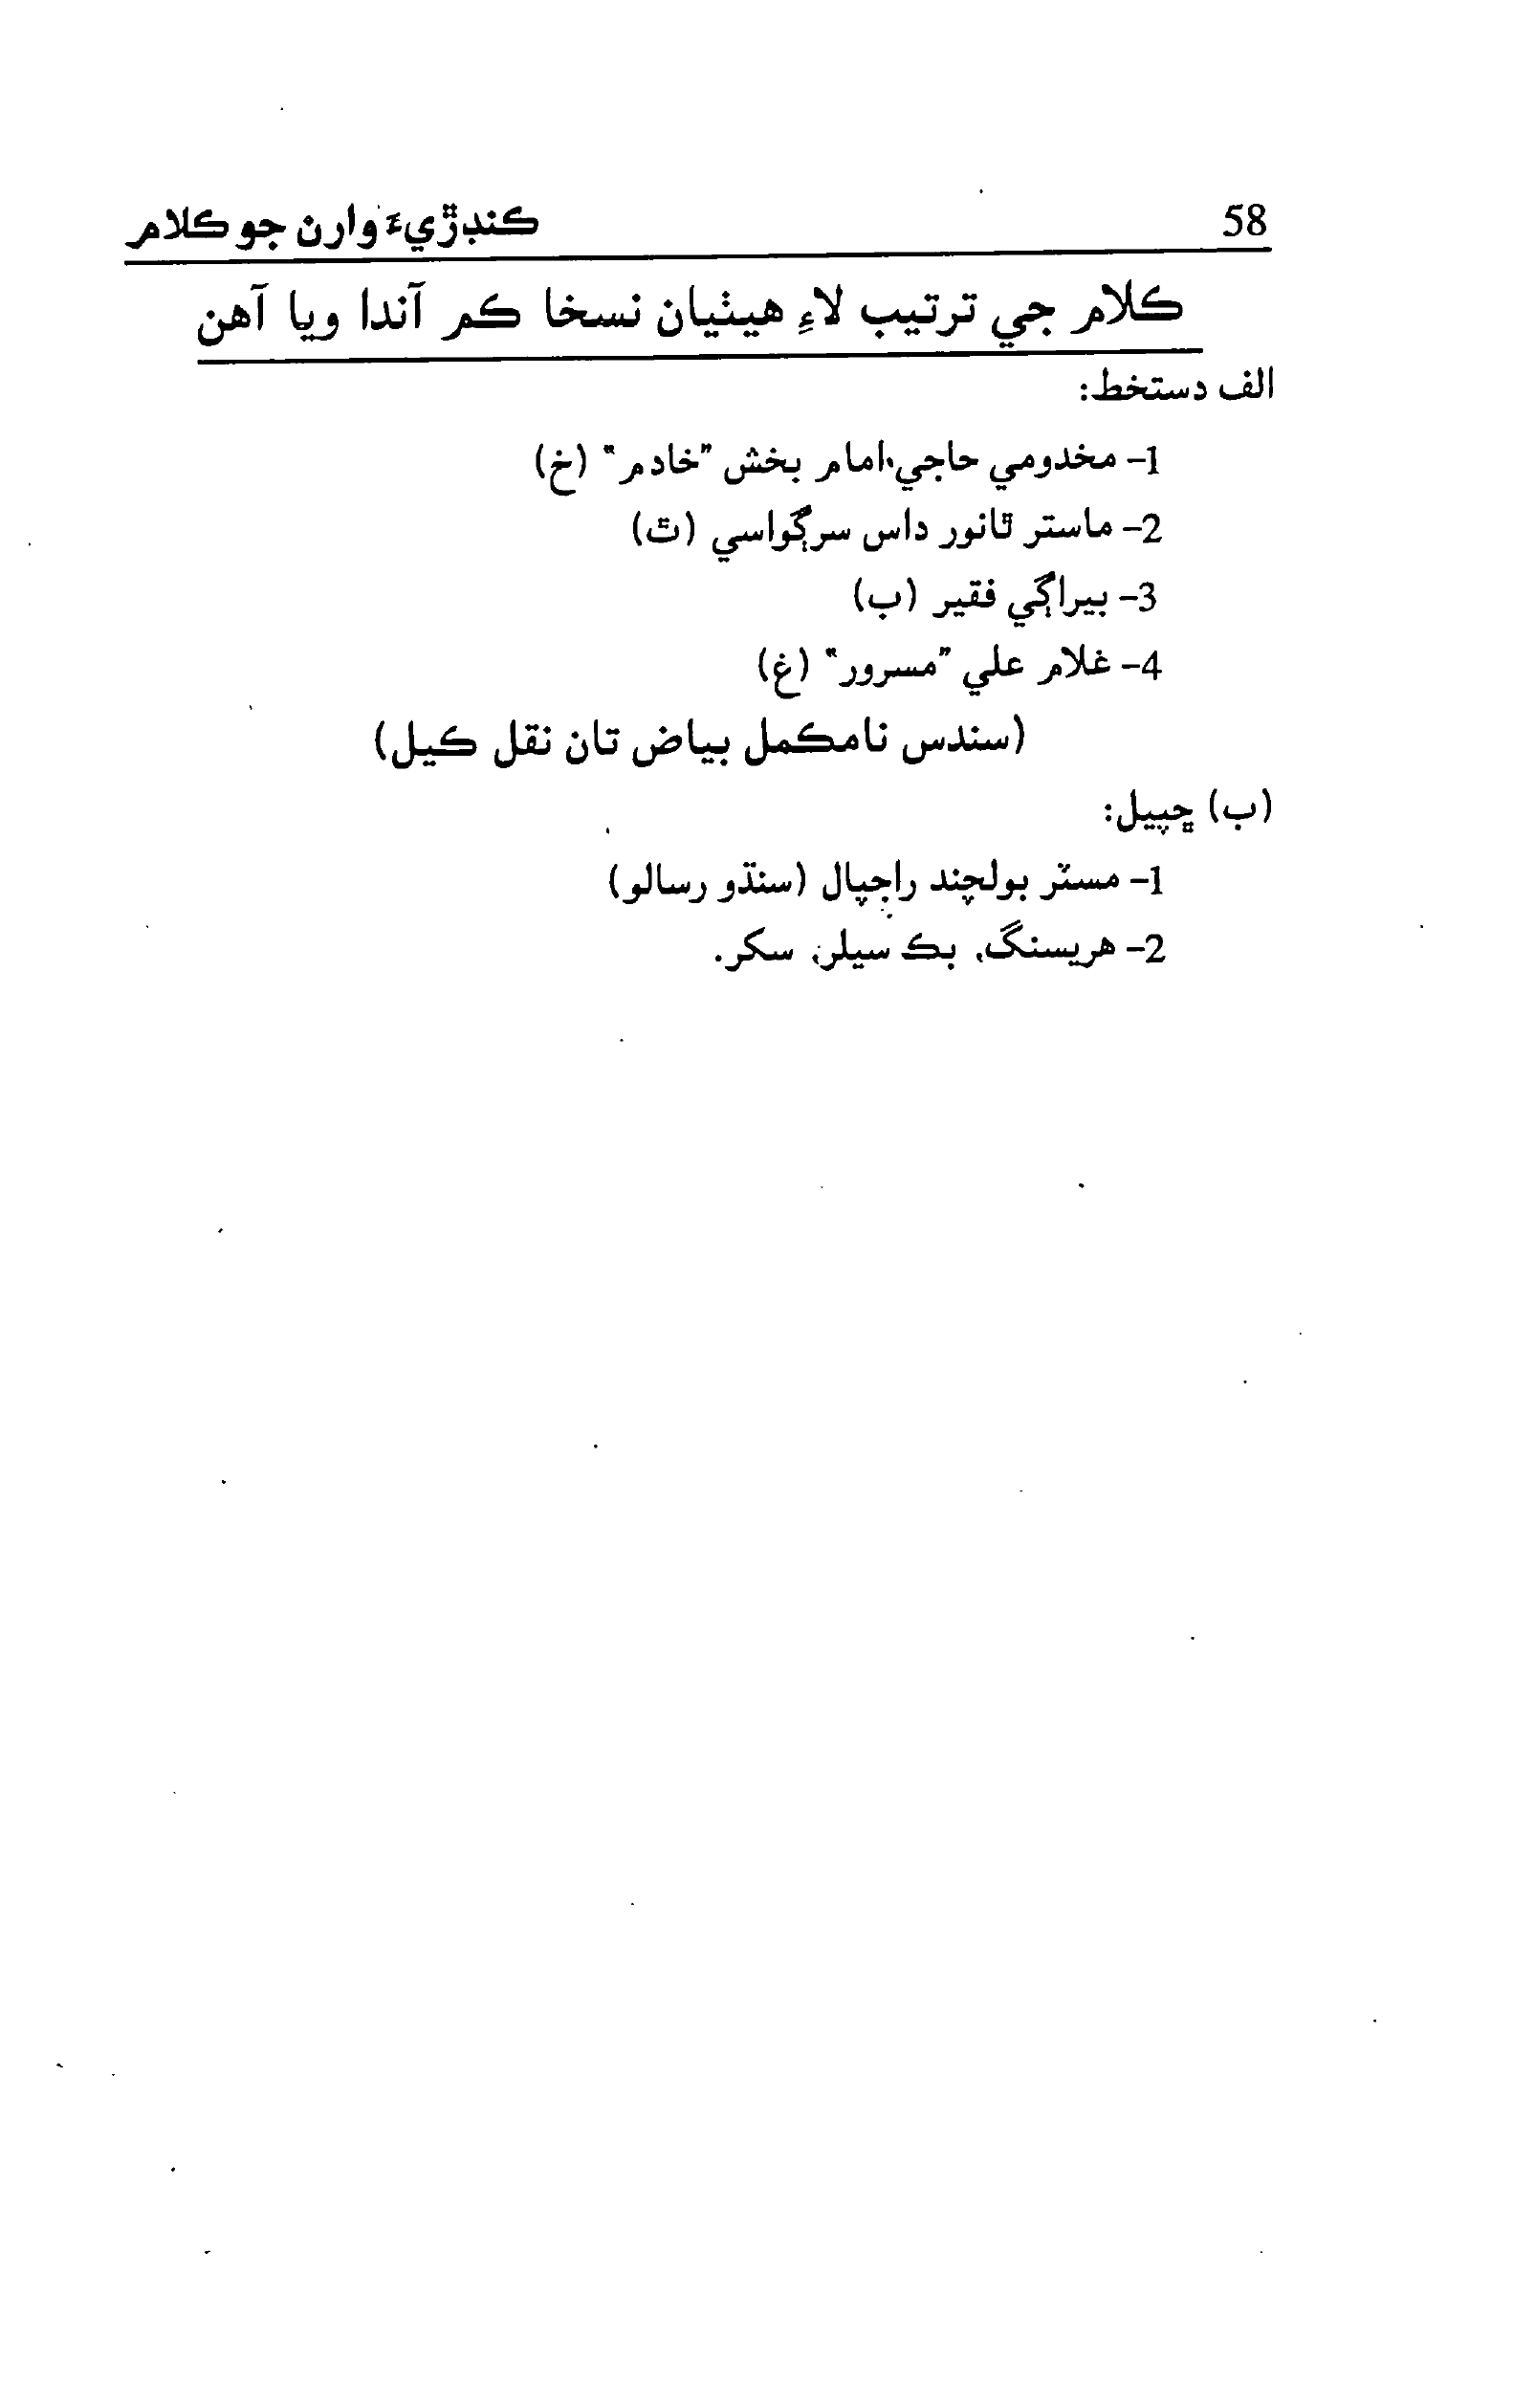 58 ڪنڊڙيءَ وارن جو ڪلام
ڪلام جي ترتيب لاءِ هيٺيان نسخا ڪم آندا ويا آهن
الف دستخط:
1- مخدومي حاجي امام بخش "خادم" (خ)
2- ماستر ٿانور داس سرڳواسي (ٿ)
3- بيراڳي فقير (ب)
4- غلام علي "مسرور" (غ)
(سندس نامڪمل بياض تان نقل ڪيل)
(ب) ڇپيل:
1- مسٽر ٻولچند راڄپال (سنڌو رسالو)
2- هريسنگ، بڪ سيلر، سکر.